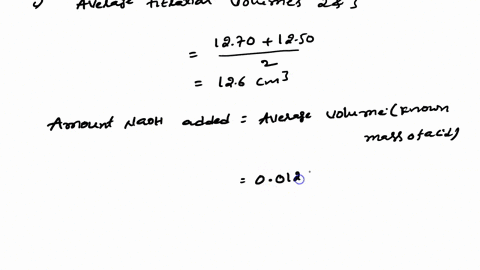 Average titration volumes 2&3
= 12.70 + 12.50
2
= 12.6 cm³
Amount NaOH added = Average volume:(known
mass of acid)
= 0.012